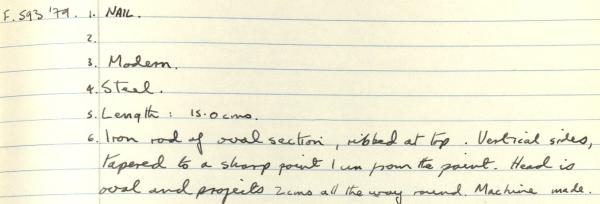 F.593 '79. 1. NAIL.
2.
3. Modern.
4. Steel.
5. Length: 15.0 cms.
6. Iron rod of oval section, ribbed at top. Vertical sides,
tapered to a sharp point 1 cm from the point. Head is
oval and projects 2cms all the way round. Machine made.